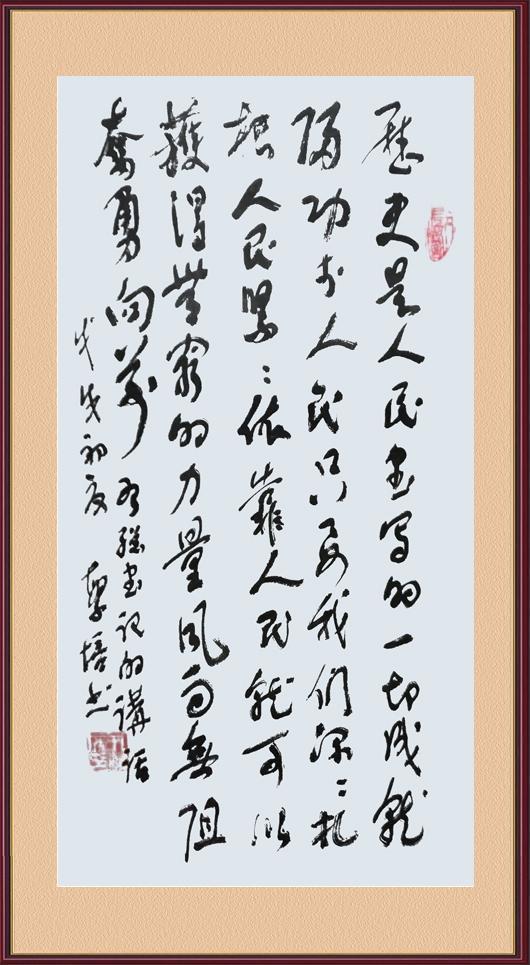 歷史是人民書寫的一切成就
歸功於人民只要我们深〻扎
根人民緊〻依靠人民就可以
獲得無窮的力量風雨無阻
奮勇向前 習總書記的講話
戊戌初夏 黎培书